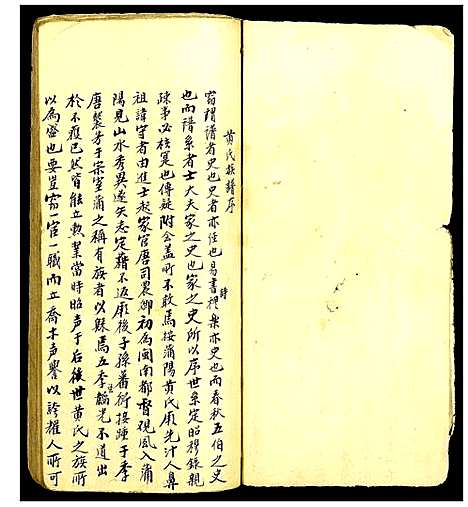 黄氏族譜序
窃謂譜者史也史者亦任也易書詩禮樂亦史也而春秋五伯之史
也而譜系者士大夫家之史也家之史所以序世系定昭穆錄親
疎事必核冥也傳疑附会盖所不敢焉按蒲陽黄氏厥先汁人鼻
祖諱守者由進士起家官唐司農卿初為閩南都督观風入蒲
陽見山水秀異遂矢志定藉不返厥後子孫蕃衍接踵于李
唐襲芳于宋室蒲之称有族者以縣焉五季韜光不道出
於不應已然皆能立勲業當時昭声于后後世黄氏之族所
以為盛也要豈窃一官一職而立喬木声譽以誇耀人所可